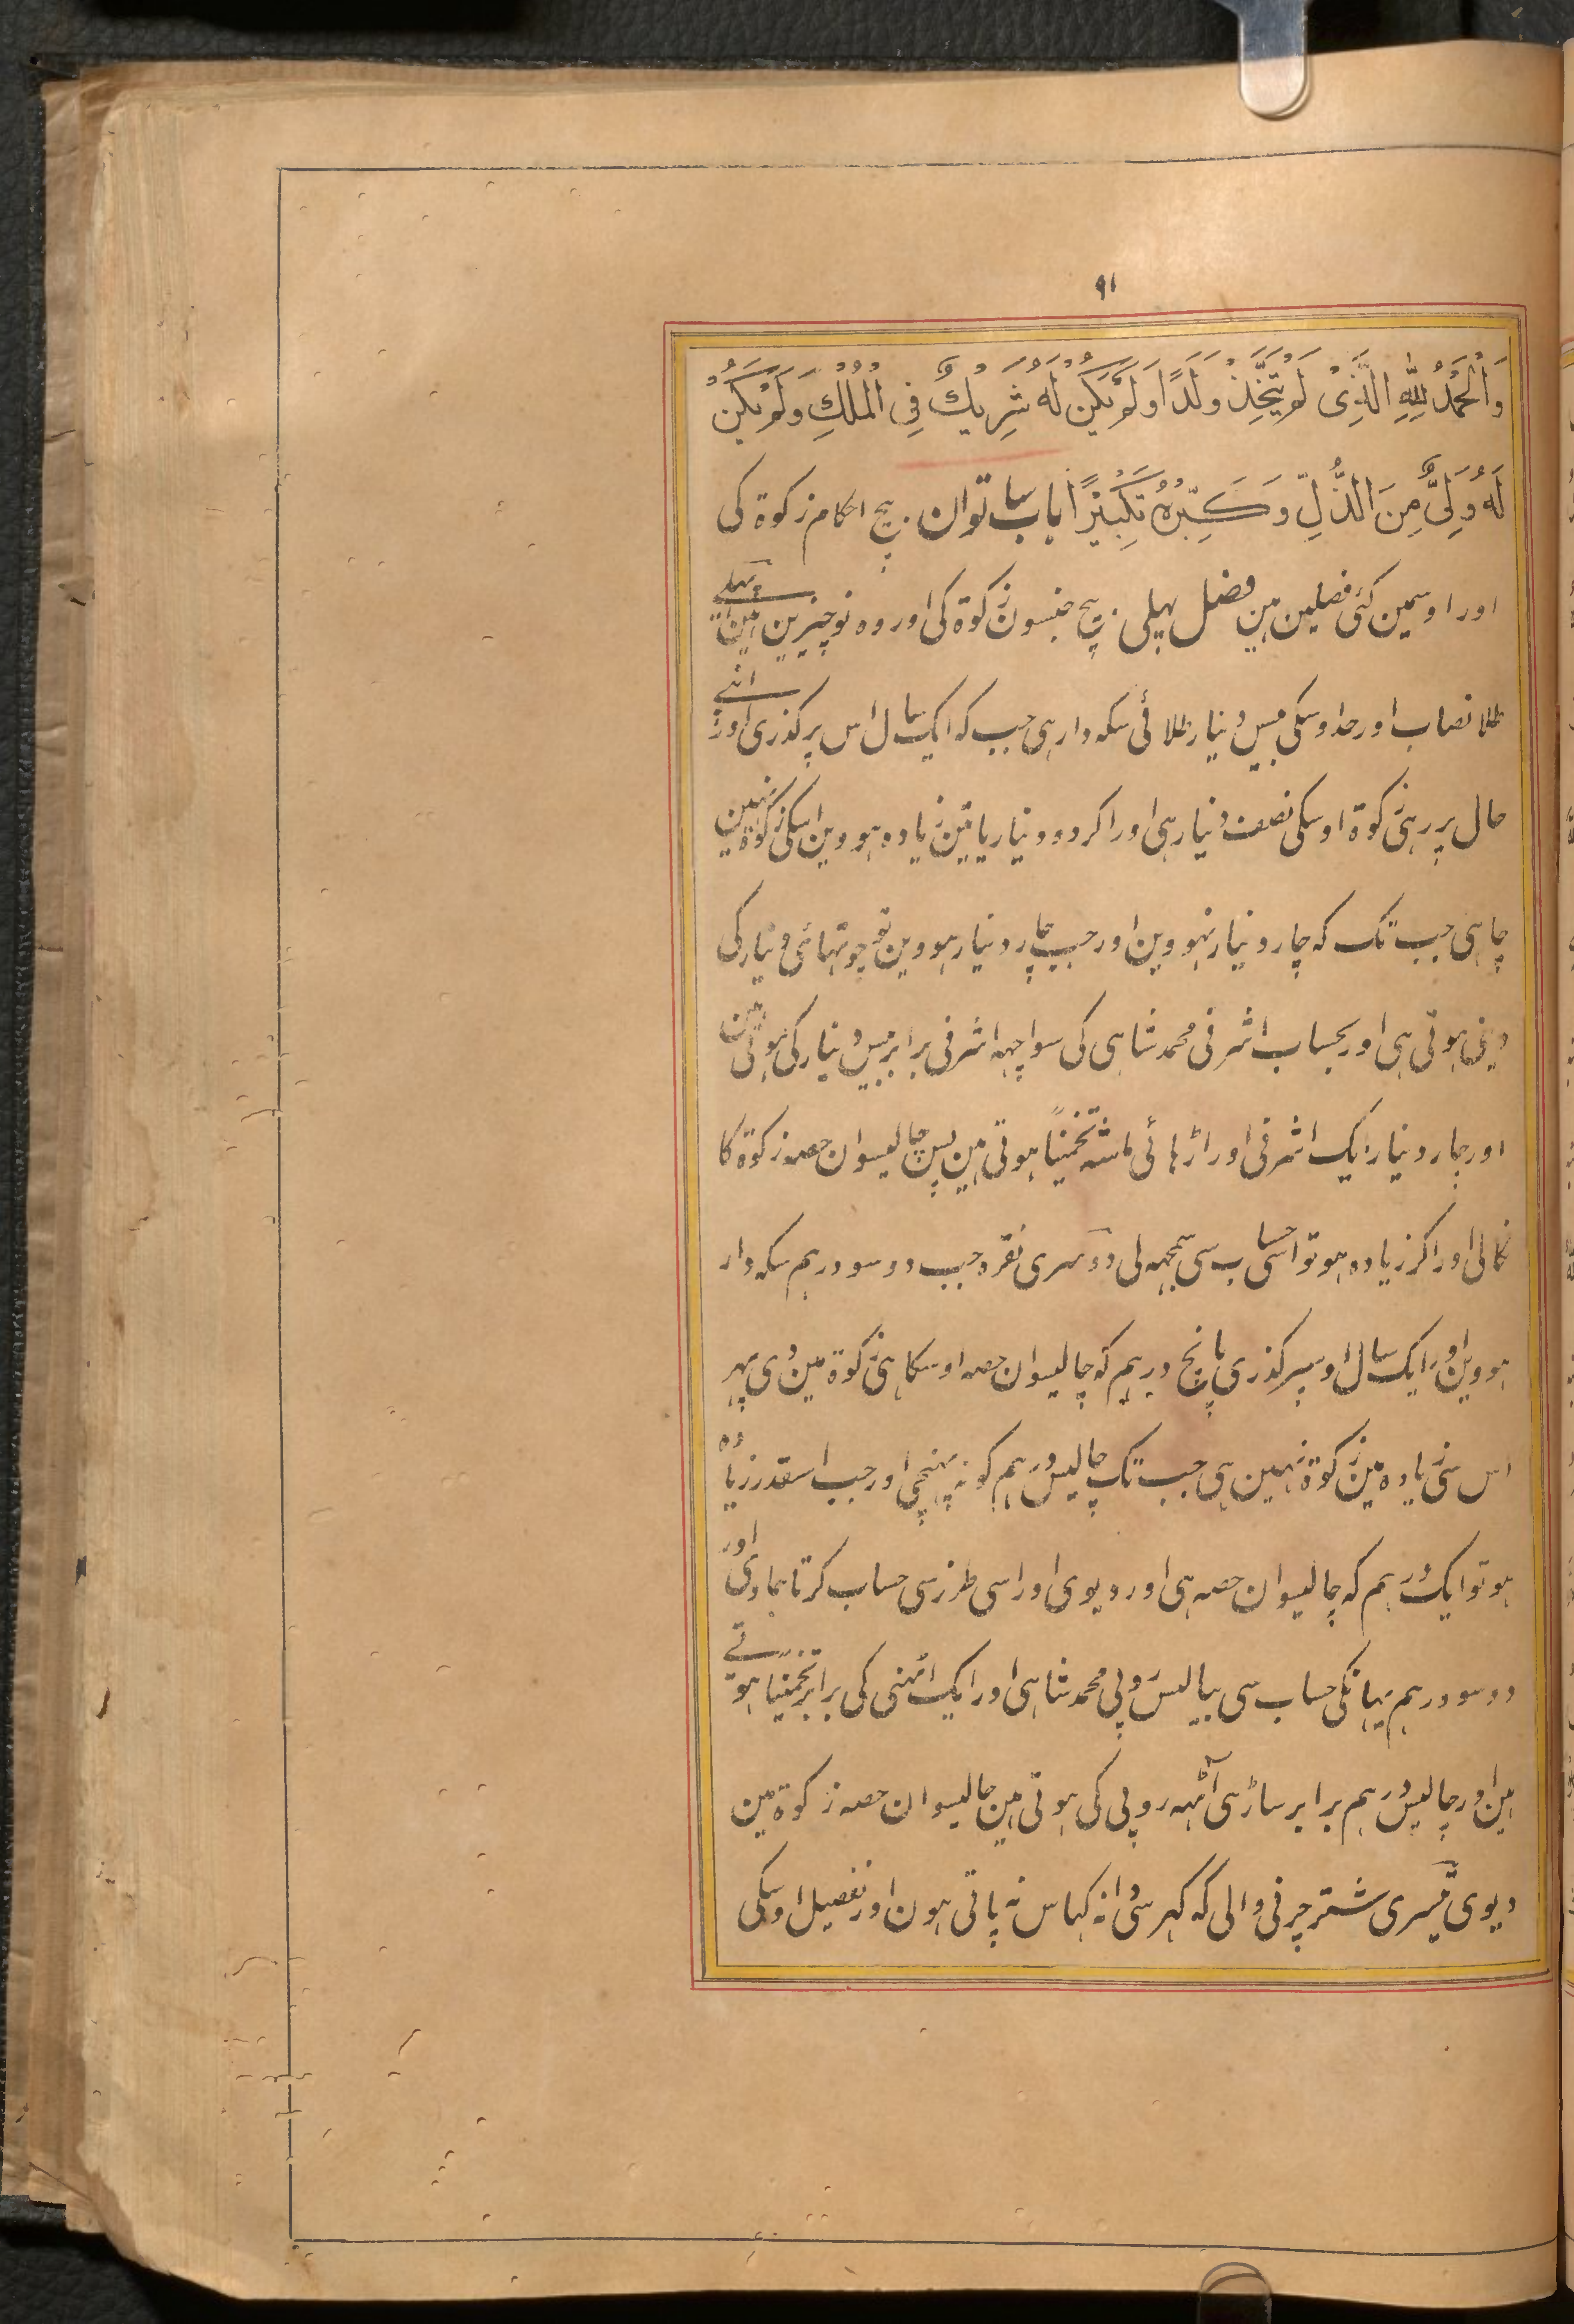 ٩١
وَالْحَمْدُ لِلّٰهِ الَّذِیْ لَمْ یَتَّخِذْ وَلَدًا وَلَمْ یَكُنْ لَهُ شَرِیْكٌ فِی الْمُلْكِ وَلَمْ یَكُنْ
لَهُ وَلِیٌّ مِنَ الذُّلِّ وَكَبِّرْهُ تَكْبِیْرًا باب ساتوان بیچ احکام زکوة کی
اور اوسمین کئی فصلین ہین فصل پہلی بیچ جنسون زکوة کی اور وہ نو چیزین ہین پہلے
طلا نصاب اور حد اوسکی بیس دینار طلائی سکہ دار ہی جب کہ ایک سال اس پر گذری اور اپنے
حال پر رہی زکوة اوسکی نصف دینار ہی اور اکر دو دینار یا تین زیادہ ہووین اسکی زکوة نہین
چاہی جب تک کہ چار دینار نہووین اور جب چار دینار ہووین تو چوتہائی دینار کی
دینی ہوتی ہی اور بحساب اشرفی محمد شاہی کی سوا چہہ اشرفی برابر بیس دینار کی ہوتی ہین
اور چار دینار ایک اشرفی اور اڑہائی ماشہ تخمیناً ہوتی ہین پس چالیسوان حصہ زکوة کا
نکالی اور اکر زیادہ ہو تو اسی حساب سی سمجہہ لی دوسری نقرہ جب دو سو درہم سکہ دار
ہووین اور ایک سال اوسپر گذری پانچ درہم کہ چالیسوان حصہ اوسکا ہی زکوة مین دی پہر
اس سی زیادہ مین زکوة نہین ہی جب تک چالیس درہم کو نہ پہنچی اور جب اسقدر زیادہ
ہو تو ایک درہم کہ چالیسوان حصہ ہی اور دیوی اور اسی طرز سی حساب کرتا جاوی اور
دو سو درہم یہانکی حساب سی بیالیس روپی محمد شاہی اور ایک اٹہنی کی برابر تخمیناً ہوتے
ہین اور چالیس درہم برابر ساڑہی آٹہہ روپی کی ہوتی ہین چالیسوان حصہ زکوة مین
دیوی تیسری شتر چرنی والی کہ گہر سی دانہ گہاس نہ پاتی ہون اور تفصیل اوسکی